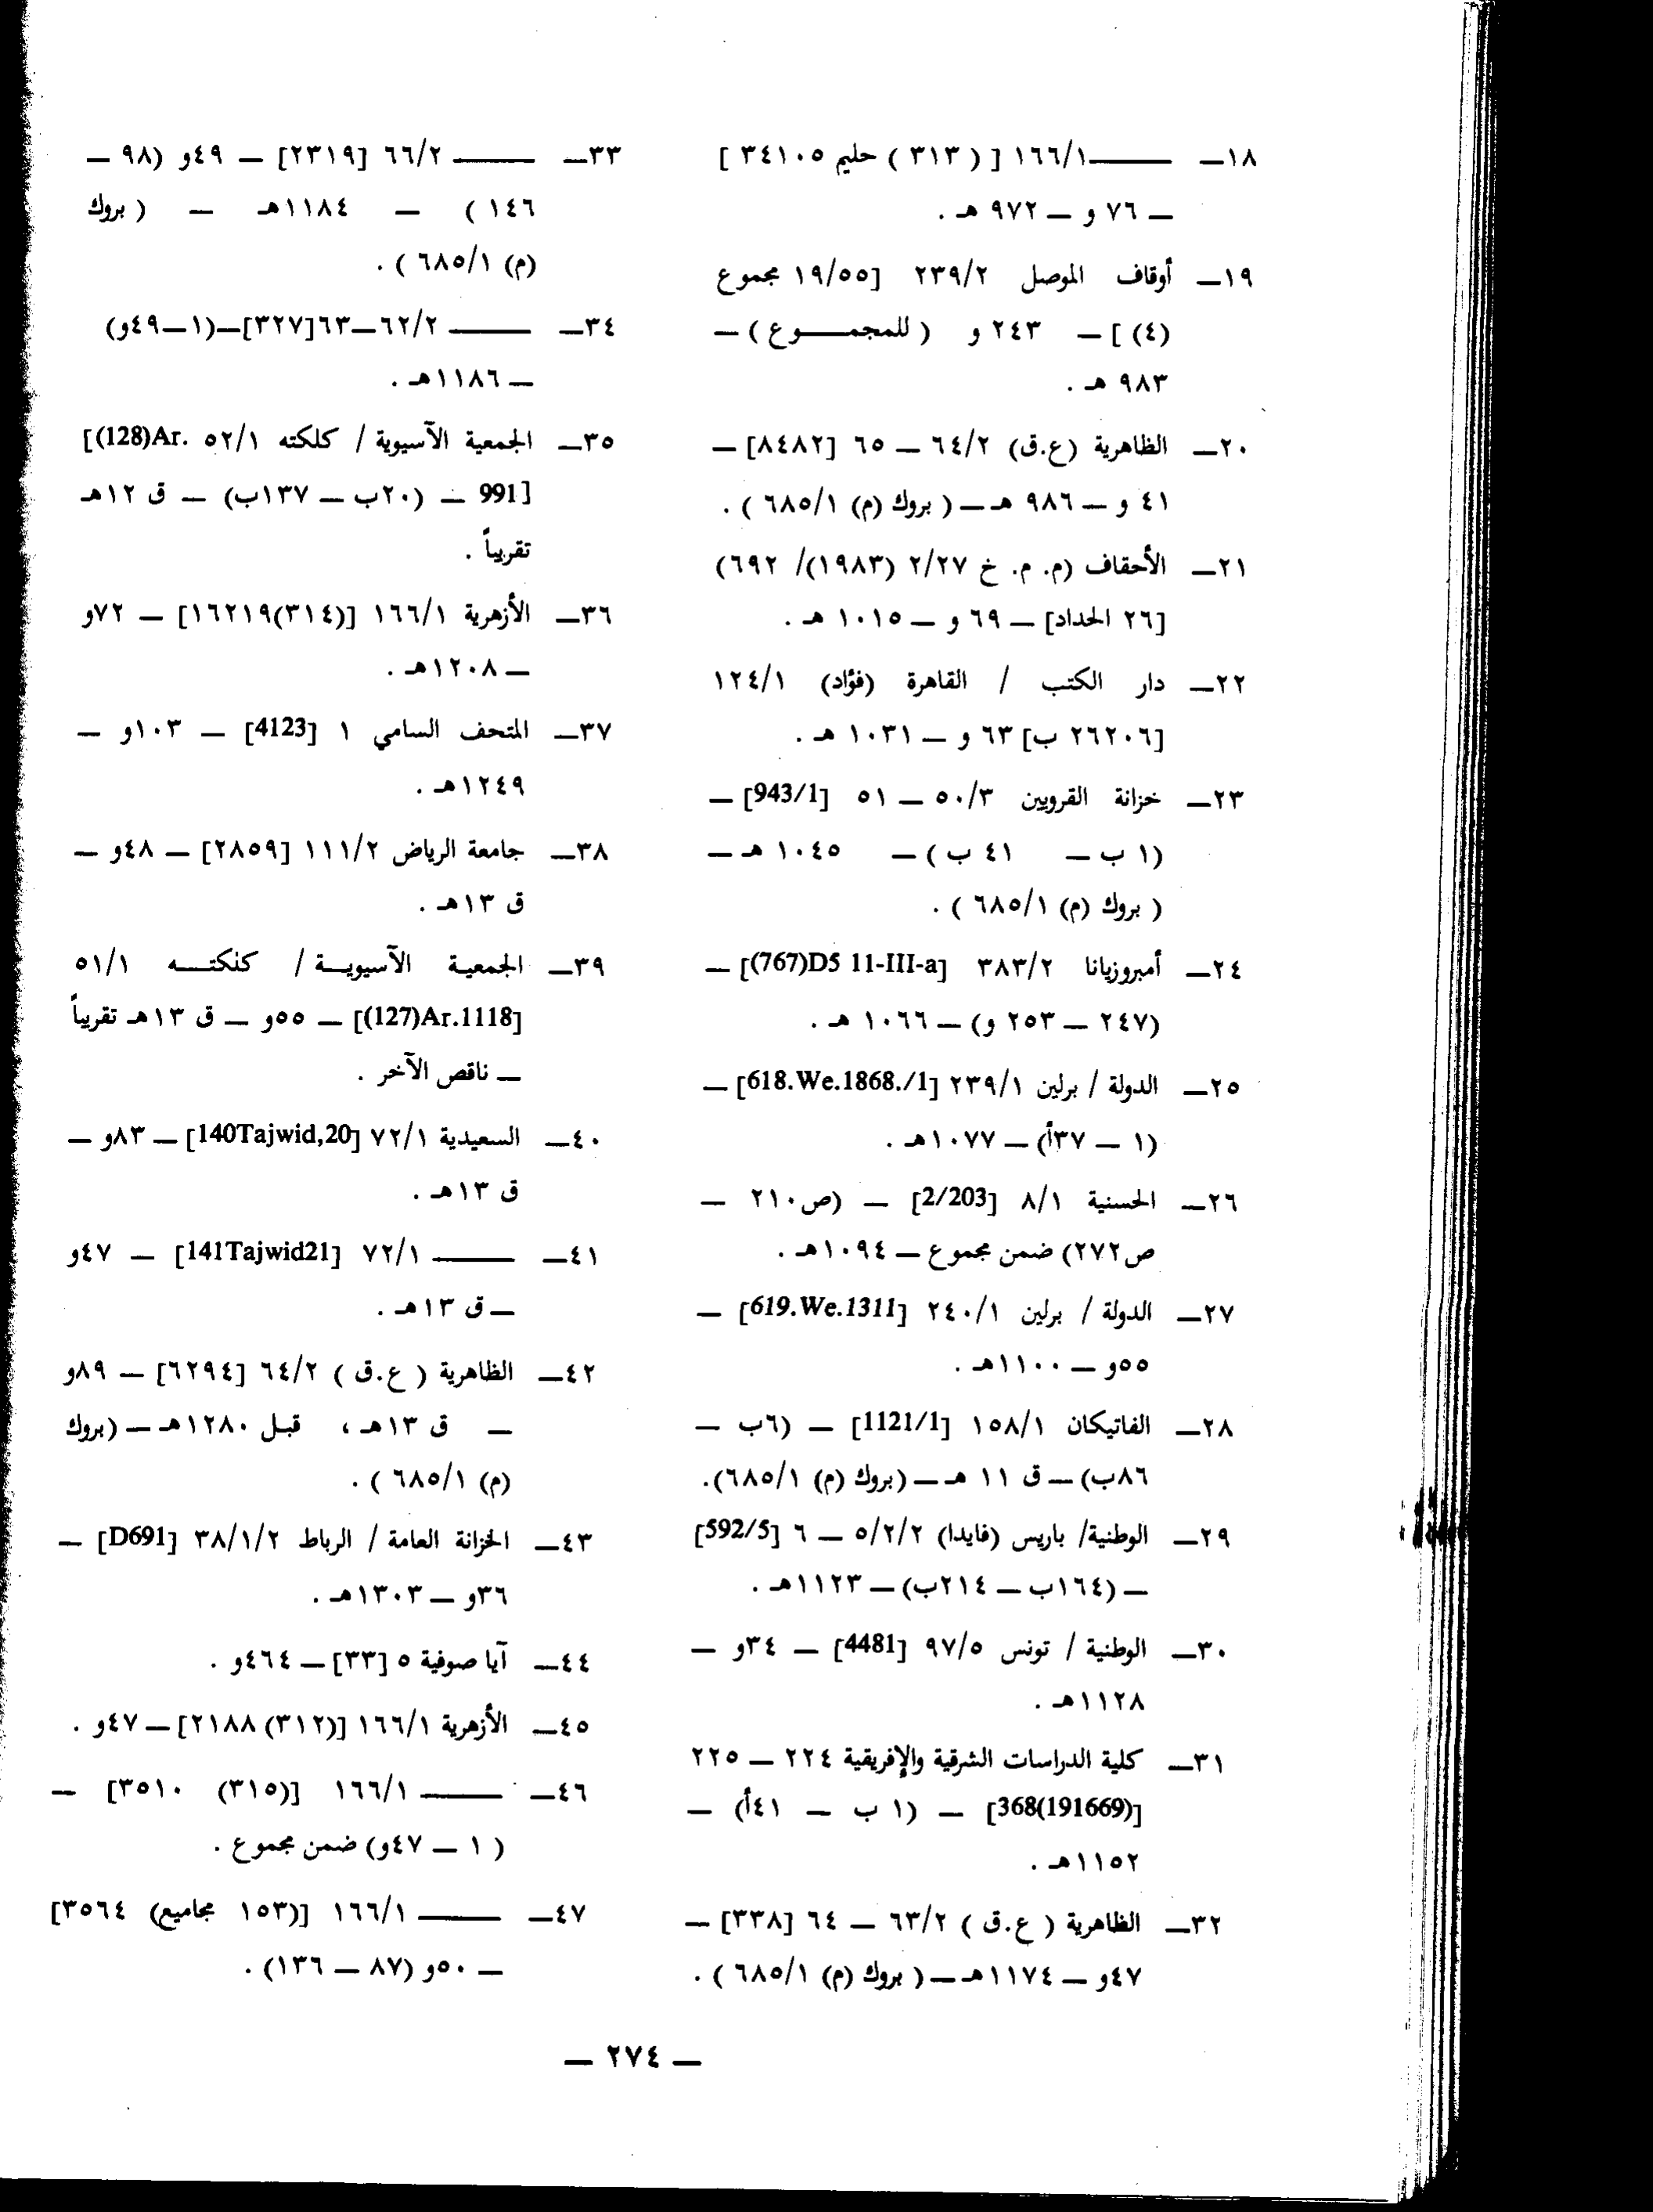 ١٨ــ ــــــــ١٦٦/١ [ ( ٣١٣ ) حليم ٣٤١٠٥ ]
ــ ٧٦ و ــ ٩٧٢ هـ .
١٩ــ أوقاف الموصل ٢٣٩/٢ [١٩/٥٥ مجموع
(٤) ] ــ ٢٤٣ و ( للمجمــــوع ) ــ
٩٨٣ هـ .
٢٠ــ الظاهرية (ع.ق) ٦٤/٢ ــ ٦٥ [٨٤٨٢] ــ
٤١ و ــ ٩٨٦ هـ ــ ( بروك (م) ٦٨٥/١ ) .
٢١ــ الأحقاف (م. م. خ ٢/٢٧ (١٩٨٣)/ ٦٩٢)
[٢٦ الحداد] ــ ٦٩ و ــ ١٠١٥ هـ .
٢٢ــ دار الكتب / القاهرة (فؤاد) ١٢٤/١
[٢٦٢٠٦ ب] ٦٣ و ــ ١٠٣١ هـ .
٢٣ــ خزانة القرويين ٥٠/٣ ــ ٥١ [943/1] ــ
(١ ب ــ ٤١ ب ) ــ ١٠٤٥ هـ ــ
( بروك (م) ٦٨٥/١ ) .
٢٤ــ أمبروزيانا ٣٨٣/٢ [(767)D5 11-III-a] ــ
(٢٤٧ ــ ٢٥٣ و) ــ ١٠٦٦ هـ .
٢٥ــ الدولة / برلين ٢٣٩/١ [618.We.1868./1] ــ
(١ ــ ٣٧أ) ــ ١٠٧٧هـ .
٢٦ــ الحسنية ٨/١ [2/203] ــ (ص٢١٠ ــ
ص٢٧٢) ضمن مجموع ــ ١٠٩٤هـ .
٢٧ــ الدولة / برلين ٢٤٠/١ [619.We.1311] ــ
٥٥و ــ ١١٠٠هـ .
٢٨ــ الفاتيكان ١٥٨/١ [1121/1] ــ (٦ب ــ
٨٦ب) ــ ق ١١ هـ ــ (بروك (م) ٦٨٥/١).
٢٩ــ الوطنية/ باريس (فايدا) ٥/٢/٢ ــ ٦ [592/5]
ــ (١٦٤ب ــ ٢١٤ب) ــ ١١٢٣هـ .
٣٠ــ الوطنية / تونس ٩٧/٥ [4481] ــ ٣٤و ــ
١١٢٨هـ .
٣١ــ كلية الدراسات الشرقية والإفريقية ٢٢٤ ــ ٢٢٥
[368(191669)] ــ (١ ب ــ ٤١أ) ــ
١١٥٢هـ .
٣٢ــ الظاهرية ( ع.ق ) ٦٣/٢ ــ ٦٤ [٣٣٨] ــ
٤٧و ــ ١١٧٤هـ ــ ( بروك (م) ٦٨٥/١ ) .
٣٣ــ ــــــــ ٦٦/٢ [٢٣١٩] ــ ٤٩و (٩٨ ــ
١٤٦ ) ــ ١١٨٤هـ ــ ( بروك
(م) ٦٨٥/١ ) .
٣٤ــ ــــــــ ٦٢/٢ــ٦٣[٣٢٧]ــ(١ــ٤٩و)
ــ ١١٨٦هـ .
٣٥ــ الجمعية الآسيوية / كلكته ٥٢/١ [(128)Ar.
991] ــ (٢٠ب ــ ١٣٧ب) ــ ق ١٢هـ
تقريباً .
٣٦ــ الأزهرية ١٦٦/١ [(٣١٤)١٦٢١٩] ــ ٧٢و
ــ ١٢٠٨هـ .
٣٧ــ المتحف السامي ١ [4123] ــ ١٠٣و ــ
١٢٤٩هـ .
٣٨ــ جامعة الرياض ١١١/٢ [٢٨٥٩] ــ ٤٨و ــ
ق ١٣هـ .
٣٩ــ الجمعية الآسيويــة / كلكتــه ٥١/١
[(127)Ar.1118] ــ ٥٥و ــ ق ١٣هـ تقريباً
ــ ناقص الآخر .
٤٠ــ السعيدية ٧٢/١ [140Tajwid,20] ــ ٨٣و ــ
ق ١٣هـ .
٤١ــ ــــــــ ٧٢/١ [141Tajwid21] ــ ٤٧و
ــ ق ١٣هـ .
٤٢ــ الظاهرية ( ع.ق ) ٦٤/٢ [٦٢٩٤] ــ ٨٩و
ــ ق ١٣هـ ، قبـل ١٢٨٠هـ ــ (بروك
(م) ٦٨٥/١ ) .
٤٣ــ الخزانة العامة / الرباط ٣٨/١/٢ [D691] ــ
٣٦و ــ ١٣٠٣هـ .
٤٤ــ آيا صوفية ٥ [٣٣] ــ ٤٦٤و .
٤٥ــ الأزهرية ١٦٦/١ [(٣١٢) ٢١٨٨] ــ ٤٧و .
٤٦ــ ــــــــ ١٦٦/١ [(٣١٥) ٣٥١٠] ــ
( ١ ــ ٤٧و) ضمن مجموع .
٤٧ــ ــــــــ ١٦٦/١ [(١٥٣ مجاميع) ٣٥٦٤]
ــ ٥٠و (٨٧ ــ ١٣٦) .
ــ ٢٧٤ ــ